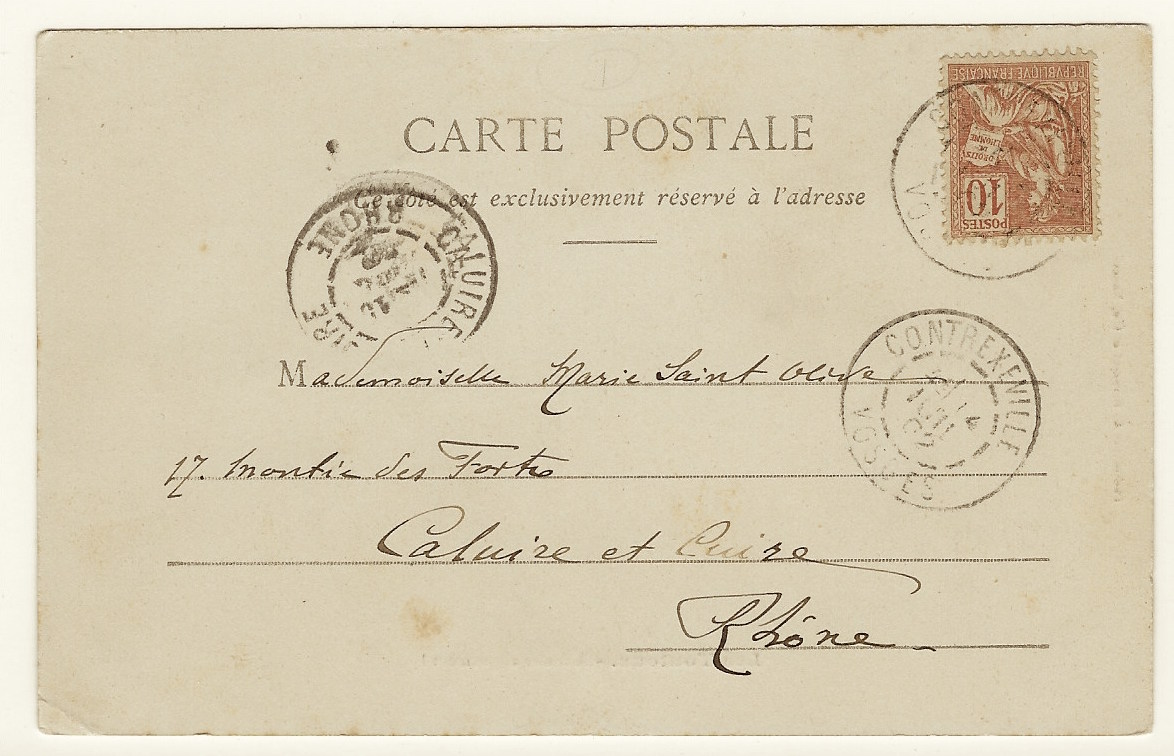 CARTE POSTALE
Ce côté est exclusivement réservé à l'adresse
REPVBLIQVE FRANÇAISE
DROITS
DE
L'HOMME
10
POSTES
CALUIRE
RHONE
CONTREXEVILLE
VOSGES
Mademoiselle Marie Saint Olive
17. montée des Forts
Caluire et Cuire
Rhône